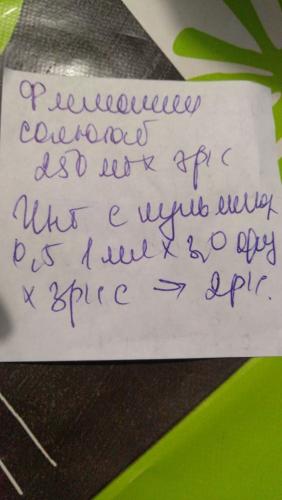 Флемоксин
солютаб
250 мг х 3р/с
Инг с пульмик
0,5 1 мл х 3,0 физ
х 3р/с → 2р/с.